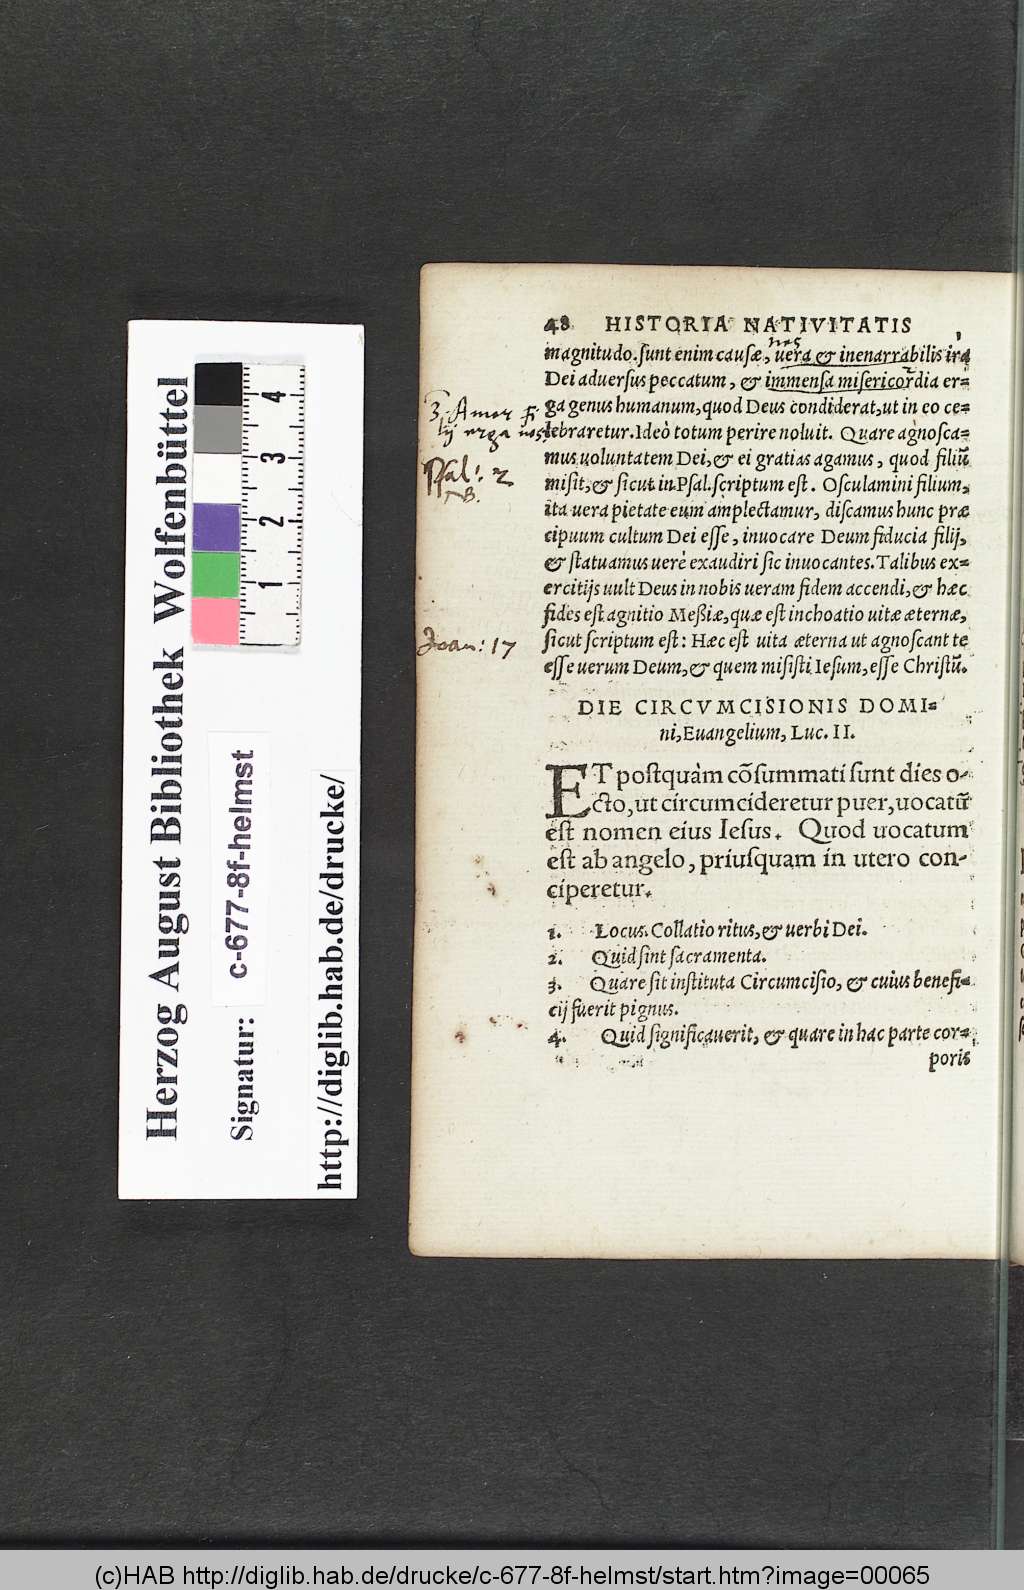 48 HISTORIA NATIVITATIS
nos
magnitudo. sunt enim causæ, uera & inenarrabilis ira
Dei aduersus peccatum, & immensa misericordia er=
ga genus humanum, quod Deus condiderat, ut in eo ce=
lebraretur. Ideò totum perire noluit. Quare agnosca=
mus uoluntatem Dei, & ei gratias agamus, quod filiũ
misit, & sicut in Psal. scriptum est. Osculamini filium,
ita uera pietate eum amplectamur, discamus hunc præ
cipuum cultum Dei esse, inuocare Deum fiducia filij,
& statuamus uerè exaudiri sic inuocantes. Talibus ex=
ercitijs uult Deus in nobis ueram fidem accendi, & hæc
fides est agnitio Meßiæ, quæ est inchoatio uitæ æternæ,
sicut scriptum est: Hæc est uita æterna ut agnoscant te
esse uerum Deum, & quem misisti Iesum, esse Christũ.
3. Amor fi
lij erga nos
Psal: 2
NB.
Joan: 17
DIE CIRCVMCISIONIS DOMI=
ni, Euangelium, Luc. II.
ET postquàm cõsummati sunt dies o-
cto, ut circumcideretur puer, uocatũ
est nomen eius Iesus. Quod uocatum
est ab angelo, priusquam in utero con-
ciperetur.
1. Locus. Collatio ritus, & uerbi Dei.
2. Quid sint sacramenta.
3. Quare sit instituta Circumcisio, & cuius benefi=
cij fuerit pignus.
4. Quid significauerit, & quare in hac parte cor=
poris
Herzog August Bibliothek Wolfenbüttel
1 2 3 4
Signatur: c-677-8f-helmst
http://diglib.hab.de/drucke/
(c)HAB http://diglib.hab.de/drucke/c-677-8f-helmst/start.htm?image=00065